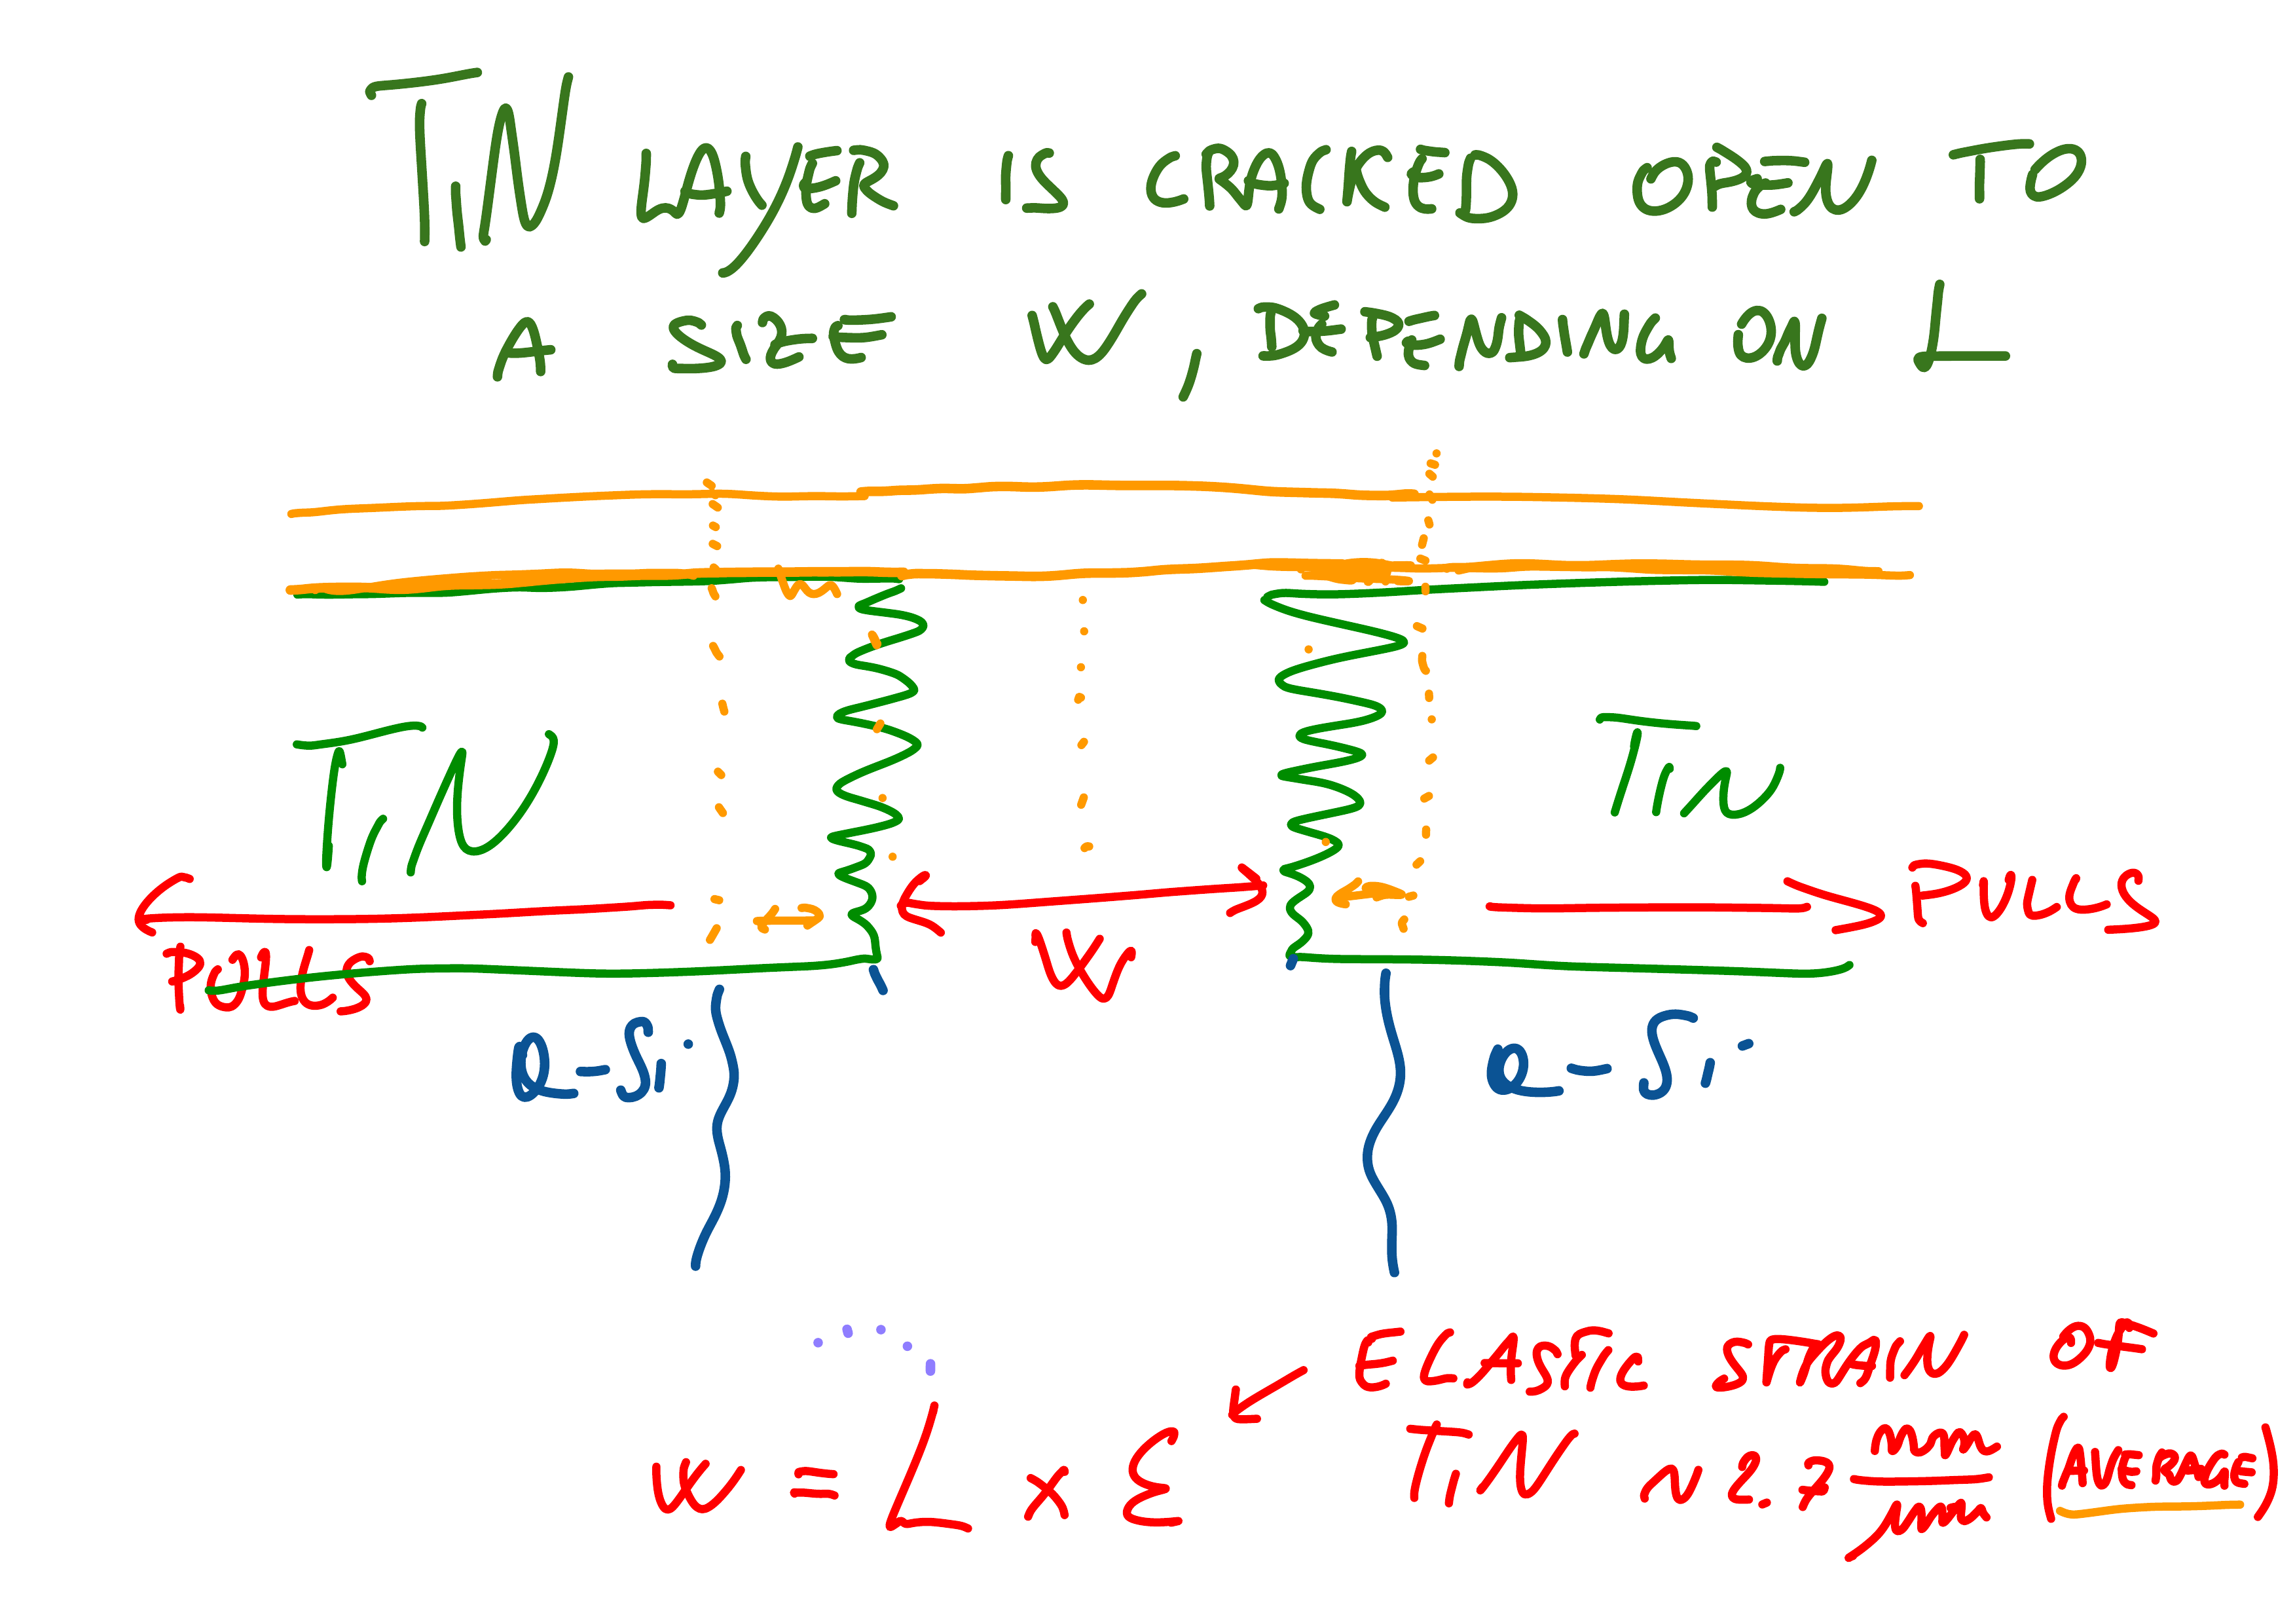 TiN LAYER IS CRACKED OPEN TO
A SIZE W, DEPENDING ON L
TiN
TiN
PULLS
PULLS
W
a-Si
a-Si
w = L x ε
ELASTIC STRAIN OF
TiN ~ 2.7 nm/μm (AVERAGE)